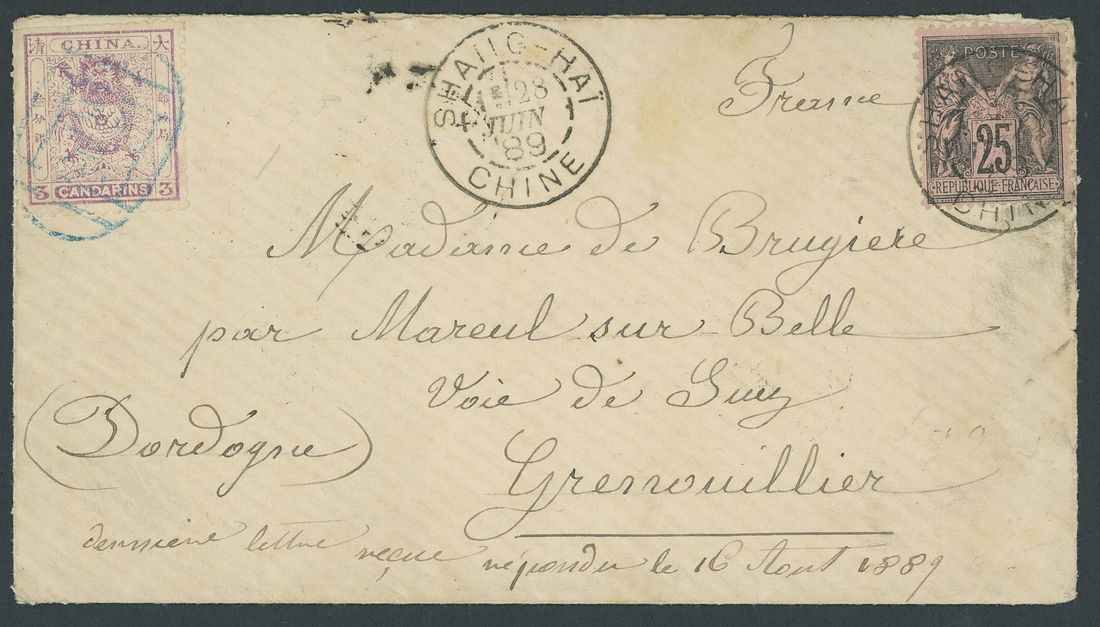 CHINA.
大
清
3 CANDARINS 3
SHANG-HAÏ
28
JUIN
89
CHINE
France
POSTE
25
REPUBLIQUE FRANÇAISE
CHINE
Madame de Brugiere
par Mareuil sur Belle
Voie de Suez
(Dordogne)
Grenouillier
dernière lettre reçue répondu le 16 Aout 1889